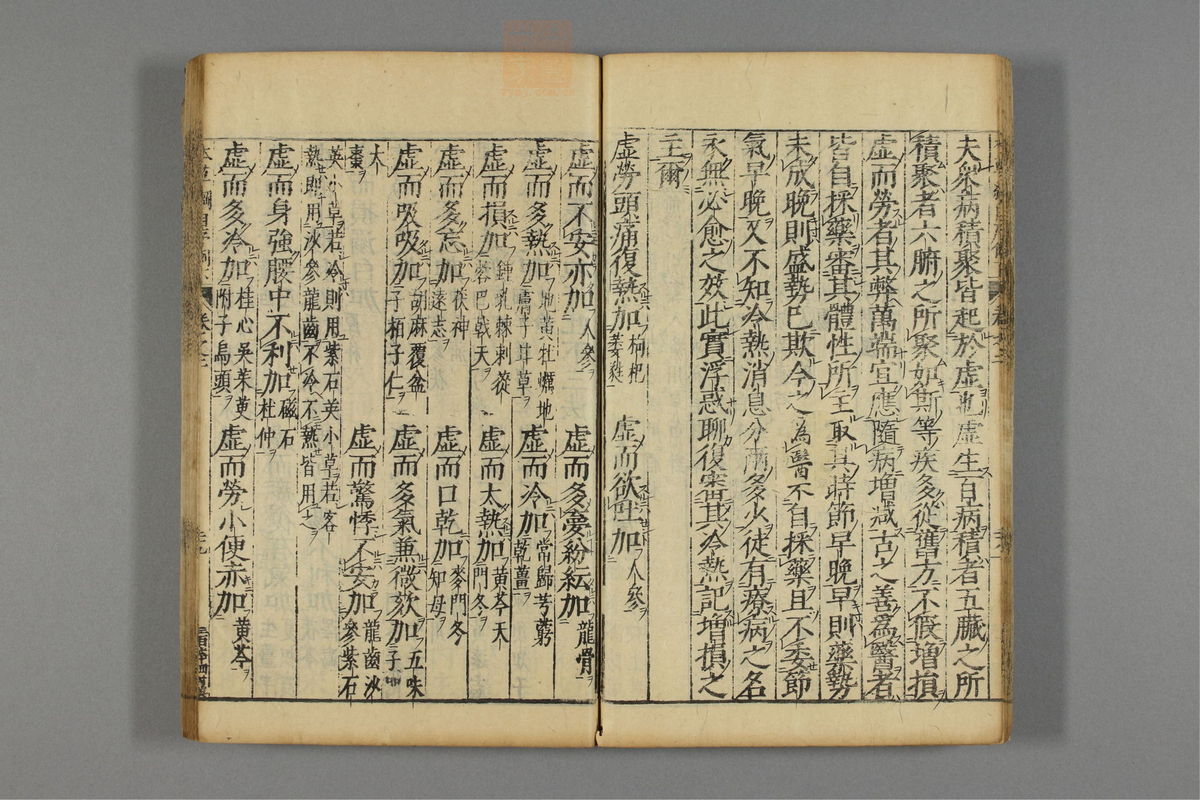 夫衆病積聚皆起於虛也虛生百病積者五臟之所
積聚者六腑之所聚如斯等疾多從舊方不假增損
虛而勞者其弊萬端宜應隨病增減古之善爲醫者
皆自採藥審其體性所主取其時節早晚早則藥勢
未成晚則盛勢已歇今之爲醫不自採藥且不委節
氣早晚又不知冷熱消息分兩多少徒有療病之名
永無必愈之效此實浮惑聊復審其冷熱記增損之
主爾
虛勞頭痛復熱加枸杞葳蕤 虛而欲吐加人參
虛而不安亦加人參 虛而多夢紛紜加龍骨
虛而多熱加地黃牡蠣地膚子甘草 虛而冷加當歸芎藭乾薑
虛而損加鍾乳棘刺蓯蓉巴戟天 虛而大熱加黃芩天門冬
虛而多忘加茯神遠志 虛而口乾加麥門冬知母
虛而吸吸加胡麻覆盆子栢子仁 虛而多氣兼微欬加五味子大棗
虛而驚悸不安加龍齒沙參紫石英小草若冷則用紫石英小草若客熱卽用沙參龍齒不冷不熱皆用之
虛而身強腰中不利加磁石杜仲
虛而多冷加桂心吳茱萸附子烏頭 虛而勞小便赤加黃芩